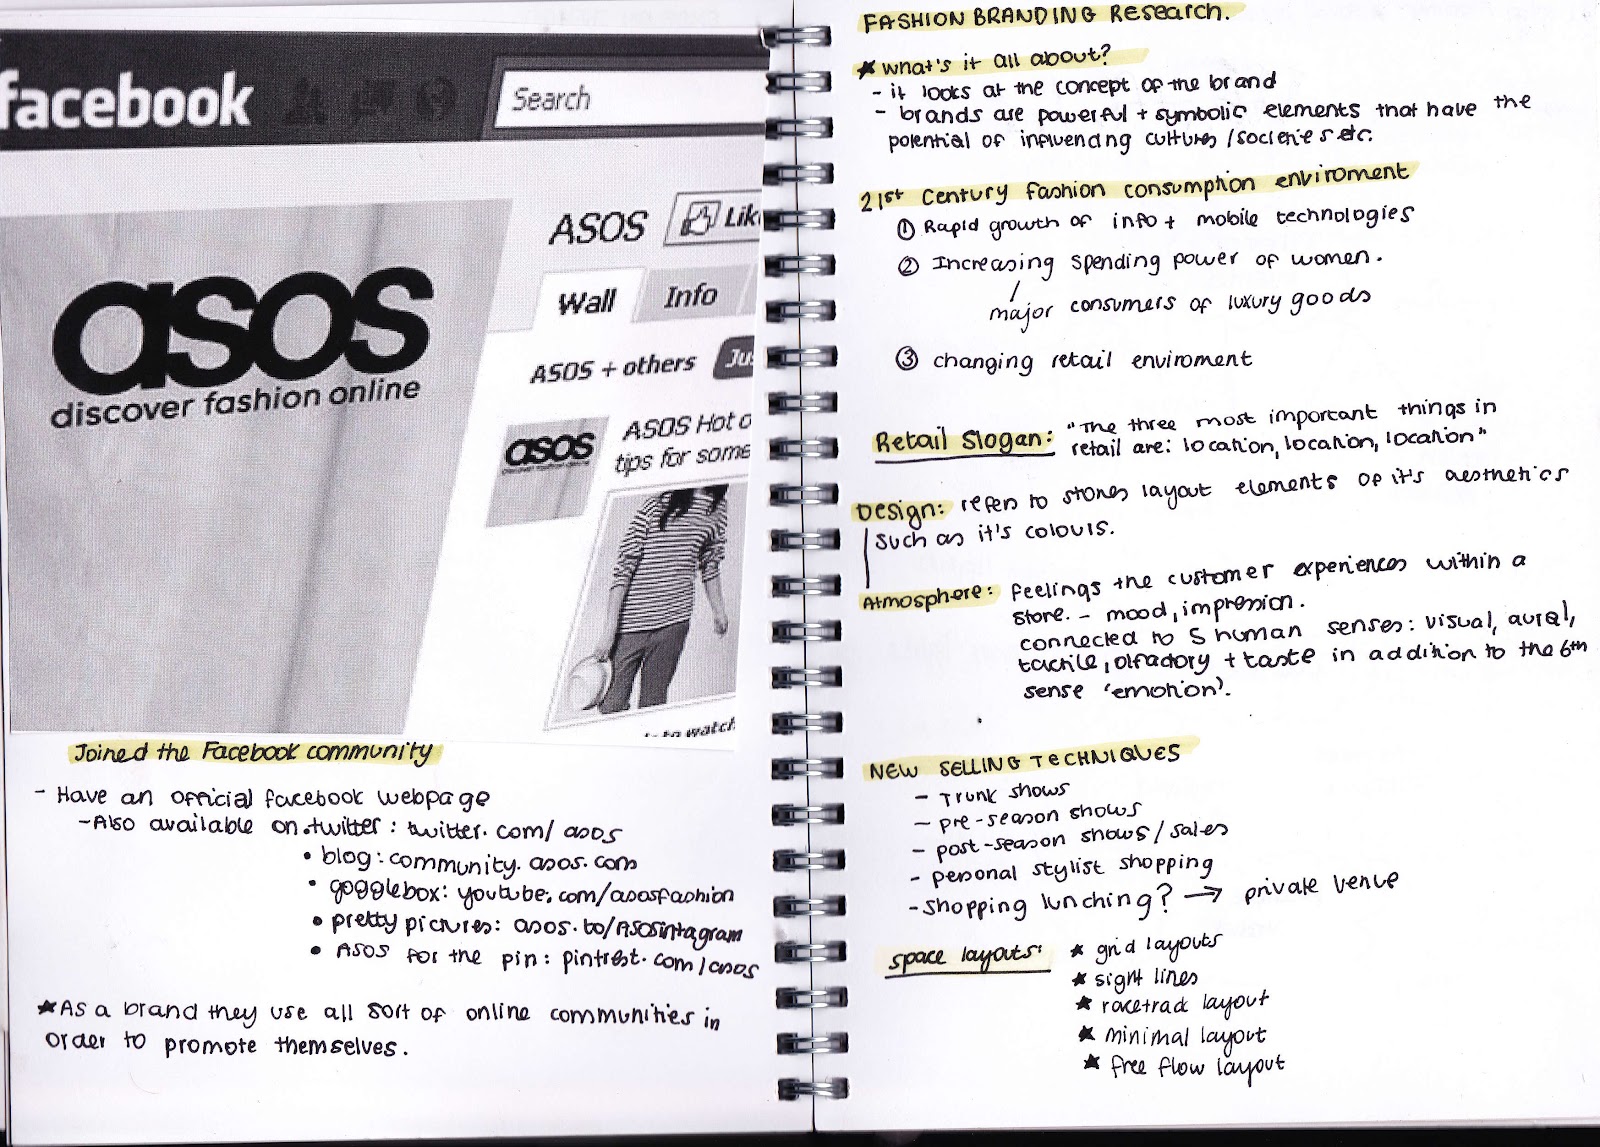 facebook
Search
ASOS
Lik
Wall
Info
ASOS + others
Jus
asos
discover fashion online
asos
discover fashion online
ASOS Hot o
tips for some
to watch
Joined the Facebook community
- Have an official facebook webpage
- Also available on • twitter : twitter.com/asos
• blog: community.asos.com
• gogglebox: youtube.com/asosfashion
• pretty pictures: asos.to/ASOSintagram
• ASOS for the pin: pintrest.com/asos
★ As a brand they use all sort of online communities in
order to promote themselves.
FASHION BRANDING Research.
★ what's it all about?
- it looks at the concept of the brand
- brands are powerful + symbolic elements that have the
potential of influencing cultures/societies etc.
21st Century fashion consumption enviroment
① Rapid growth of info + mobile technologies
② Increasing spending power of women.
major consumers of luxury goods
③ changing retail enviroment
Retail Slogan: "The three most important things in
retail are: location, location, location"
Design: refers to stores layout elements of it's aesthetics
such as it's colours.
Atmosphere: feelings the customer experiences within a
store. - mood, impression.
connected to 5 human senses: visual, aural,
tactile, olfactory + taste in addition to the 6th
sense 'emotion'.
NEW SELLING TECHNIQUES
- Trunk shows
- pre-season shows
- post-season shows/sales
- personal stylist shopping
- shopping lunching? → private venue
space layouts:
★ grid layouts
★ sight lines
★ racetrack layout
★ minimal layout
★ free flow layout